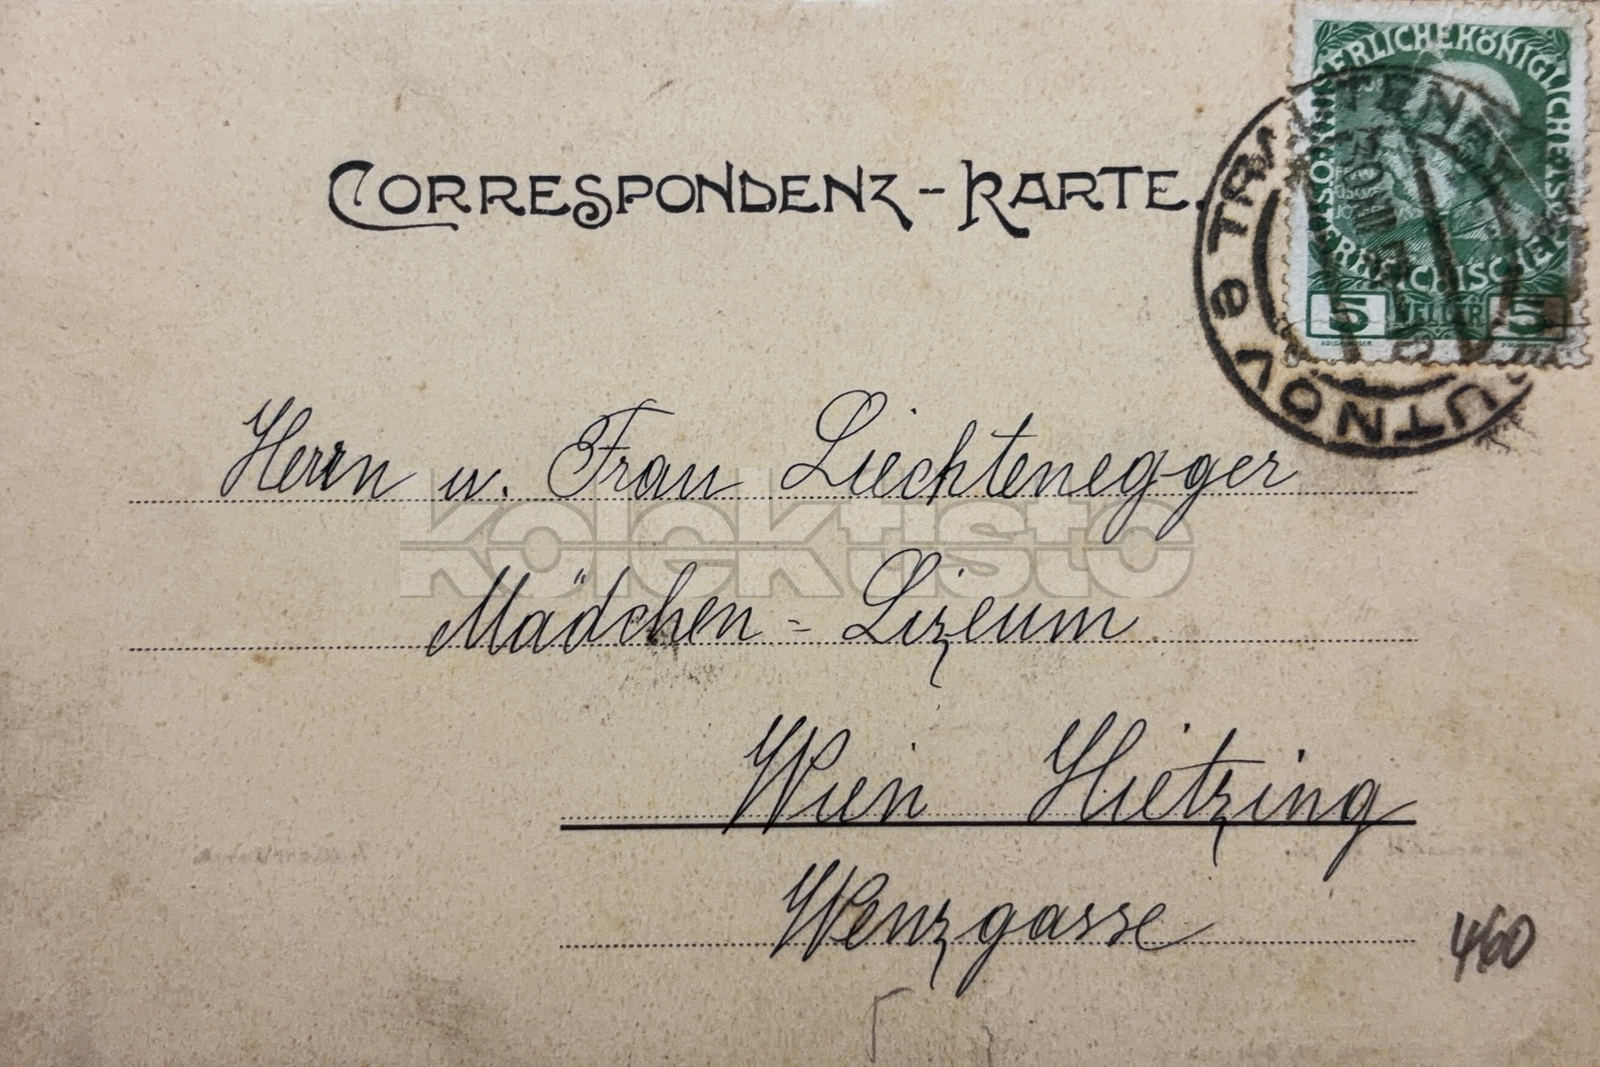 CORRESPONDENZ-KARTE.
KAISERLICHEKÖNIGLICHE ÖSTERREICHISCHE POST
5 HELLER 5
TRAUTENAU
TRUTNOV
Herrn u. Frau Liechtenegger
Mädchen-Lizeum
Wien Hietzing
Wenzgasse
460
kolektisto